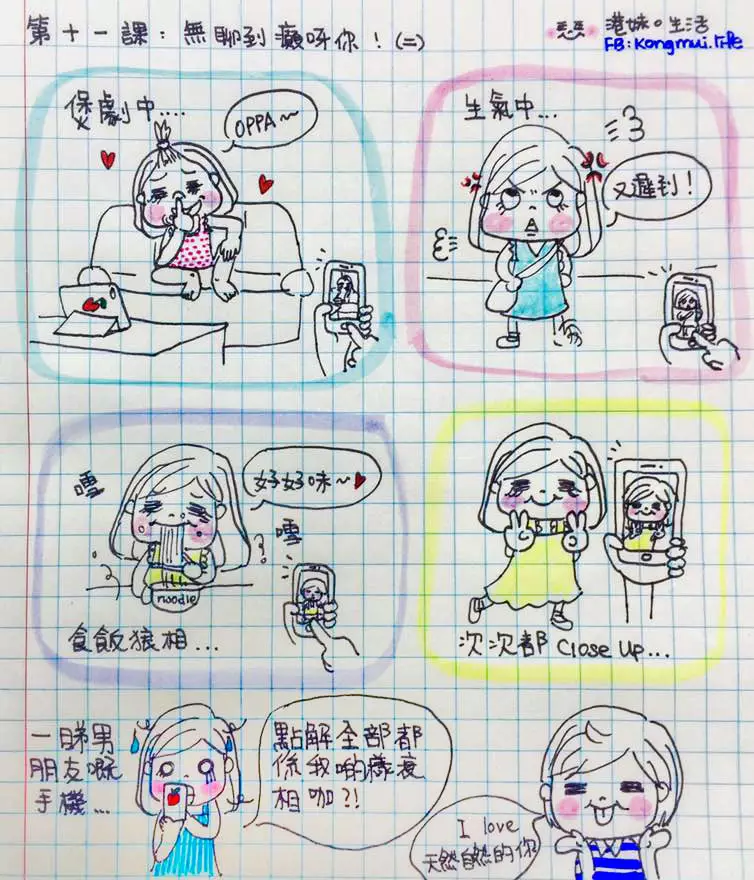 第十一課:無聊到癲呀你!(二)
港妹。生活
FB:Kongmui.life
煲劇中....
OPPA~
生氣中...
又遲到!
好好味~
嘡
嘡
noodle
食飯狼相...
次次都 Close Up...
一睇男
朋友嘅
手機...
點解全部都
係我啲癢痕
相咖?!
I love
天然自然的你